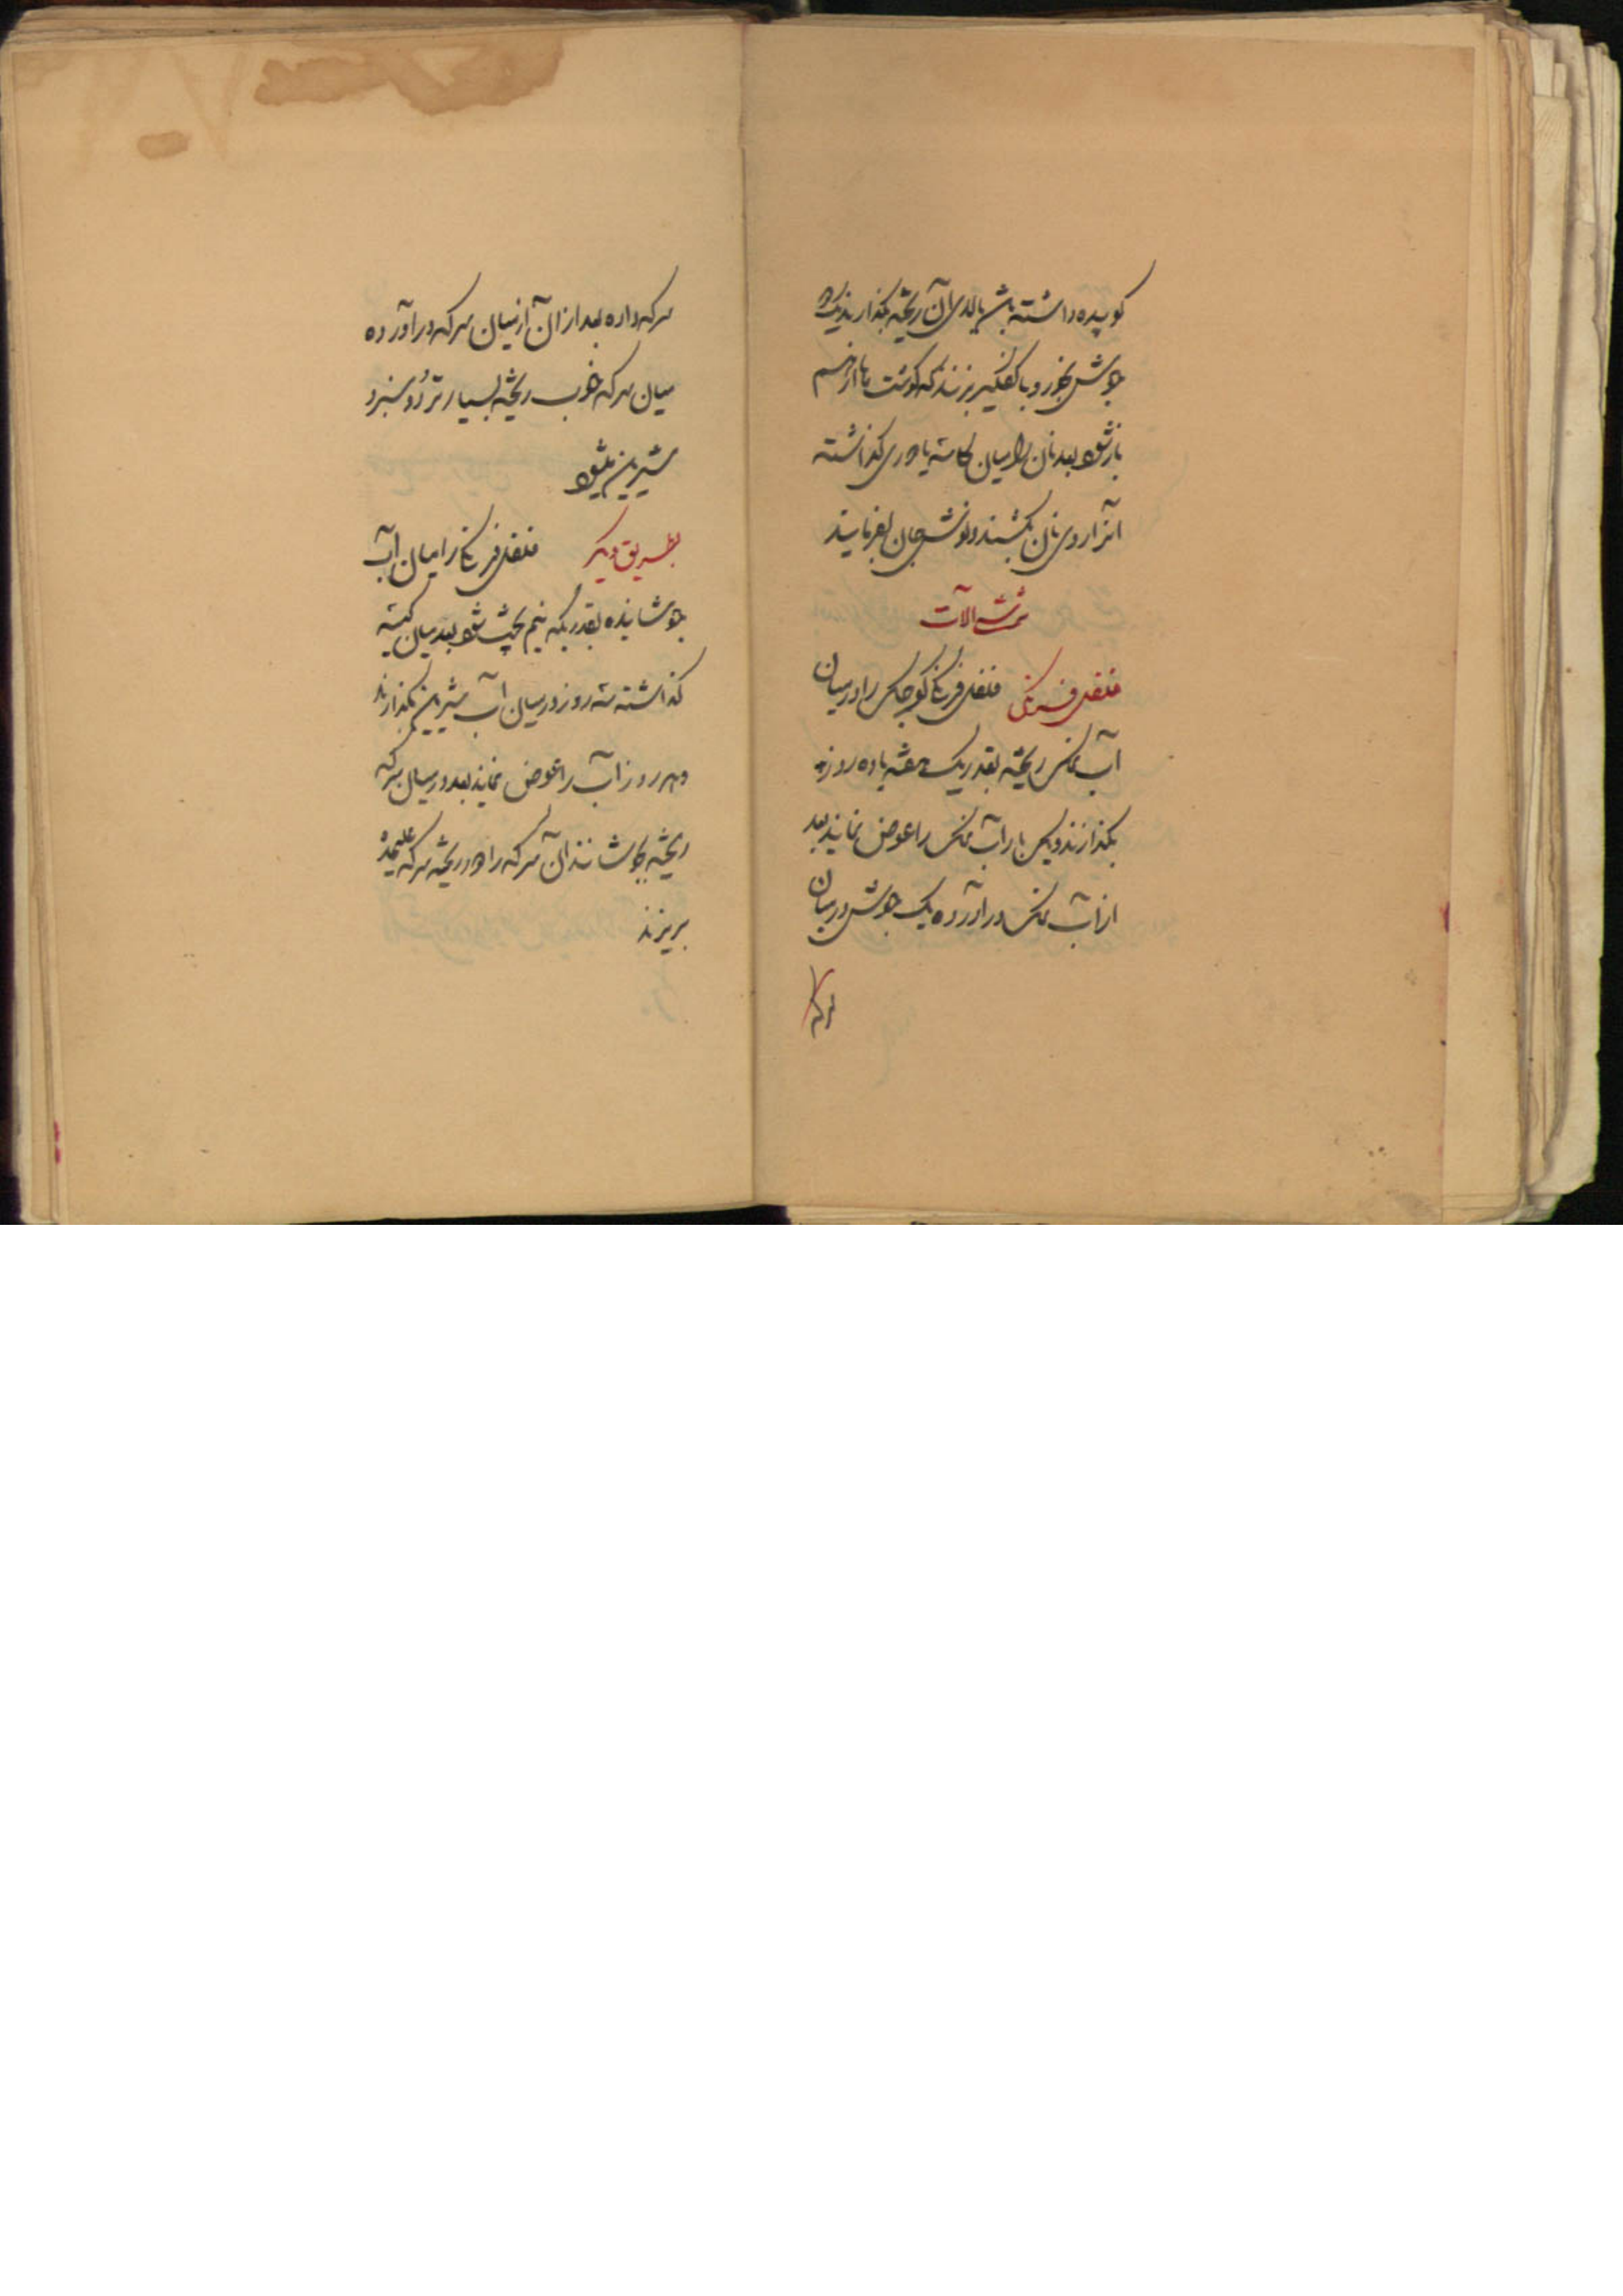 کوپیده داشته باشند بالای آن ریخته بگذارند یک دو
جوش بخورد و با کفگیر بزنند که گوشت ها از هم
باز شود بعد نان را میان کاسه یا دوری گذاشته
آنرا روی نان بکشند و نوش جان بفرمایند
ترشی آلات
فلفل فرنگی فلفل فرنگی کوچک را در میان
آب نمک ریخته بقدر یک هفته یا ده روز
بگذارند و یک بار آب نمک را عوض نمایند بعد
از آب نمک در آورده یک جوش در میان
سرکه
سرکه داده بعد از آن از میان سرکه در آورده
میان سرکه خوب ریخته بسیار ترد و سبز و
شیرین میشود
بطریق دیگر فلفل فرنگی را میان آب
جوشانیده بقدریکه نیم پخت شود بعد میان کیسه
گذاشته سه روز در میان آب شیرین بگذارند
و هر روز آب را عوض نمایند بعد در میان سرکه
ریخته بجوشانند آن سرکه را دور ریخته سرکه علیحده
بریزند